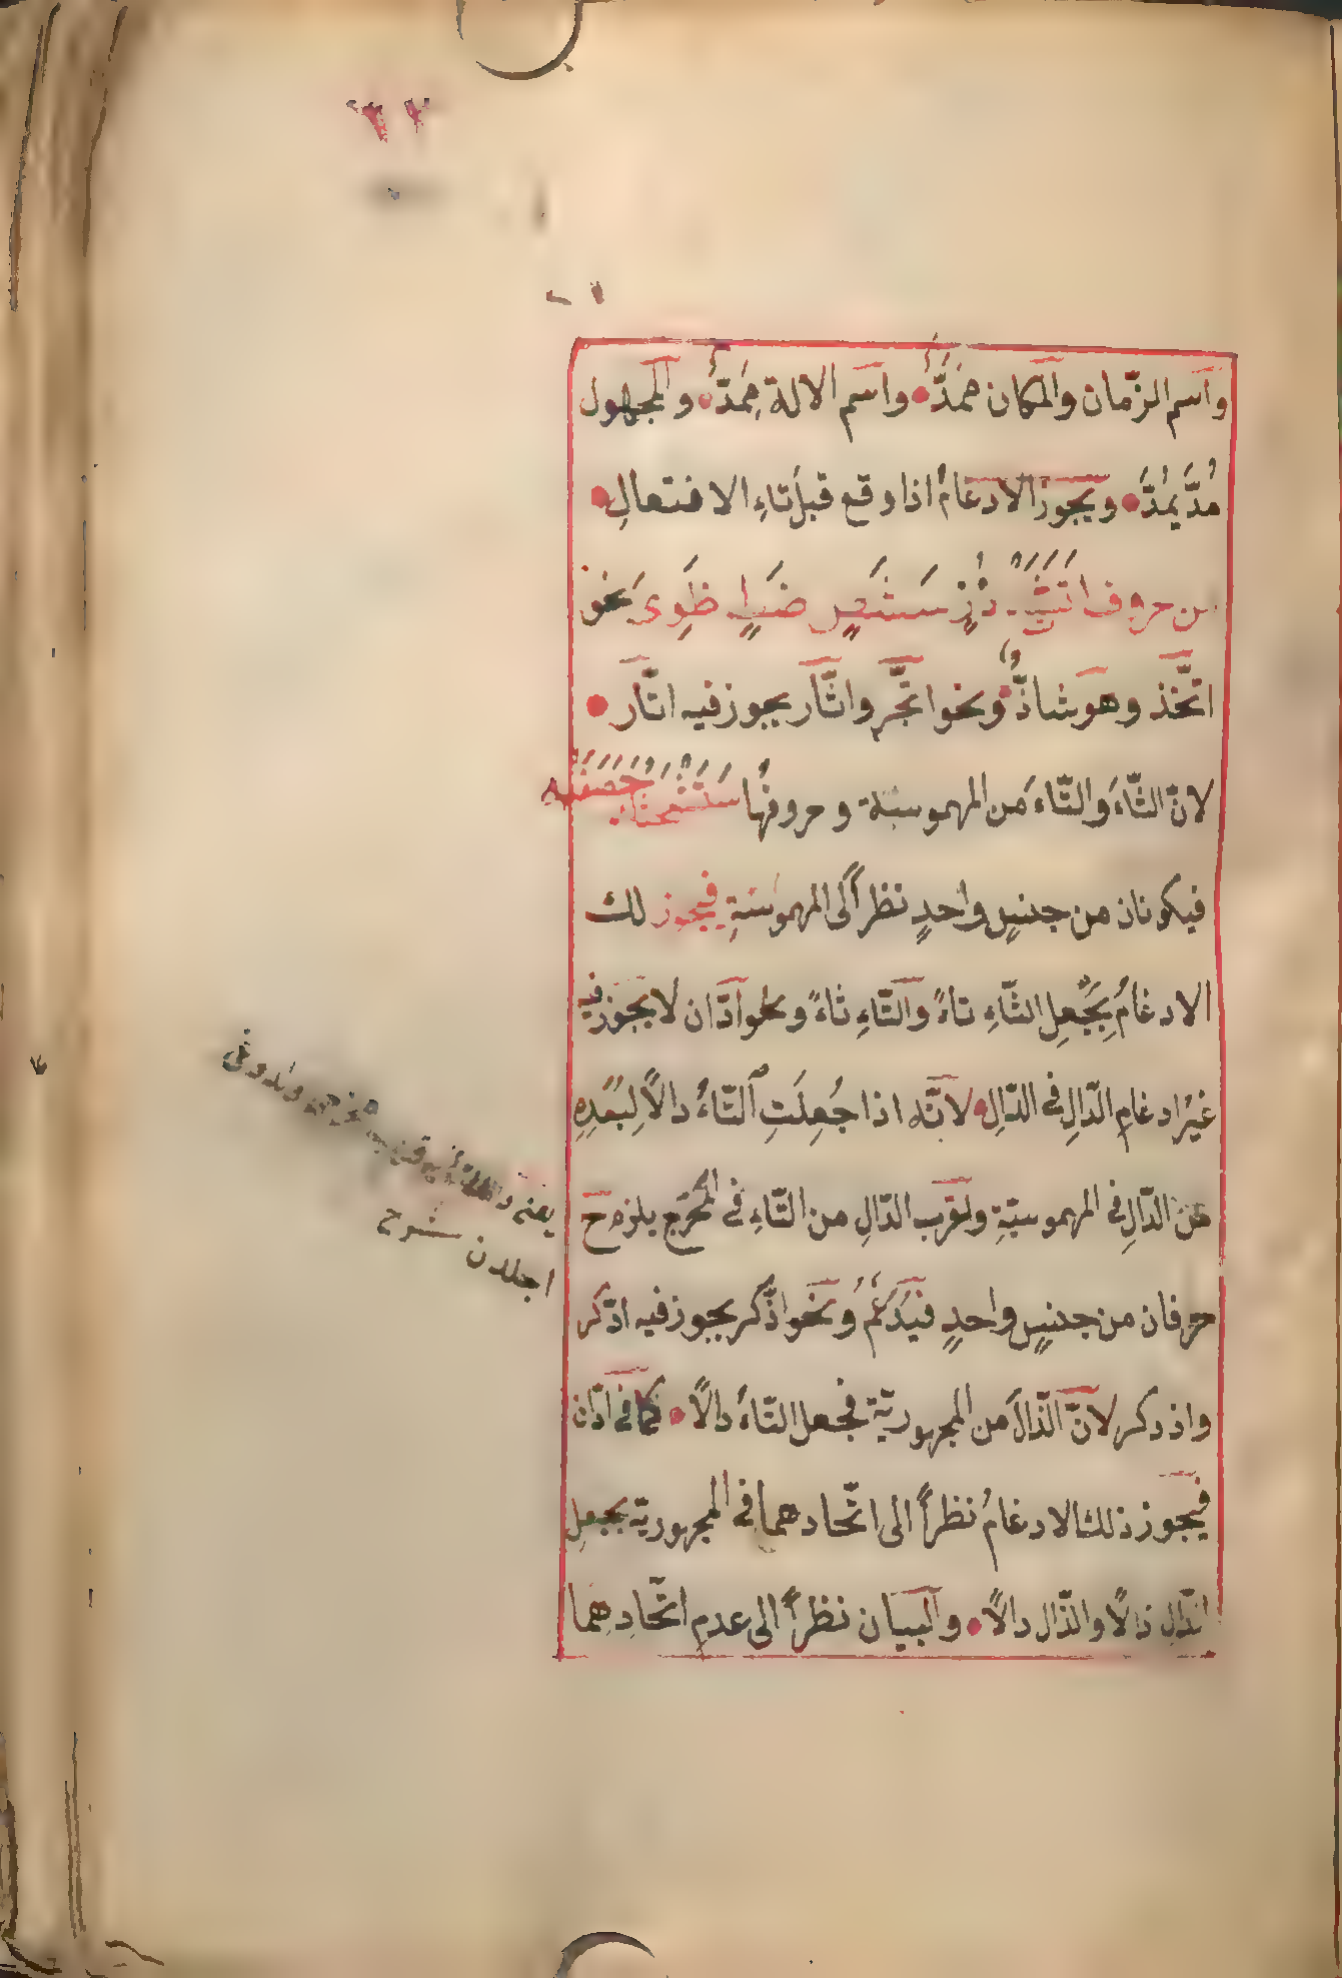 ٦٣
واسم الزّمان والمكان مَمَدٌّ واسم الالة مِمَدٌّ والمجهول
مُدَّ يُمَدُّ ويجوز الادغامُ اذا وقع قبل تاءِ الافتعالِ
من حروف اتثد ذز سشص ضط ظوى نحو
اتّخذ وهو شاذٌّ ونحو اتّجر واثّار يجوز فيه اتّار
لانّ الثّاءَ والتّاءَ من المهموسيّة وحروفُها ستشحثك خصفه
فيكونان من جنسٍ واحدٍ نظراً الى المهموسيّةِ فيجوز لك
الادغامُ بجعلِ الثّاءِ تاءً والتّاءِ ثاءً ونحو ادّان لا يجوز فيه
غيرُ ادغامِ الدّالِ في الدّالِ لانّه اذا جُعِلَتِ التّاءُ دالاً لِبُعْدِهِ
من الدّالِ في المهموسيّةِ ولقرب الدّالِ من التّاءِ في المخرج يلزم ح
حرفان من جنسٍ واحدٍ فيُدغَمُ ونحو اذّكر يجوز فيه ادّكر
واذدكر لانّ الذّالَ من المجهوريّة فجعل التّاءُ دالاً كما في ادّان
فيجوز ذلك الادغامُ نظراً الى اتّحادهما في المجهوريّة بجعلِ
الدّالِ ذالاً والذّال دالاً والبيان نظراً الى عدمِ اتّحادِهما
يعنى
اجلدن شرح